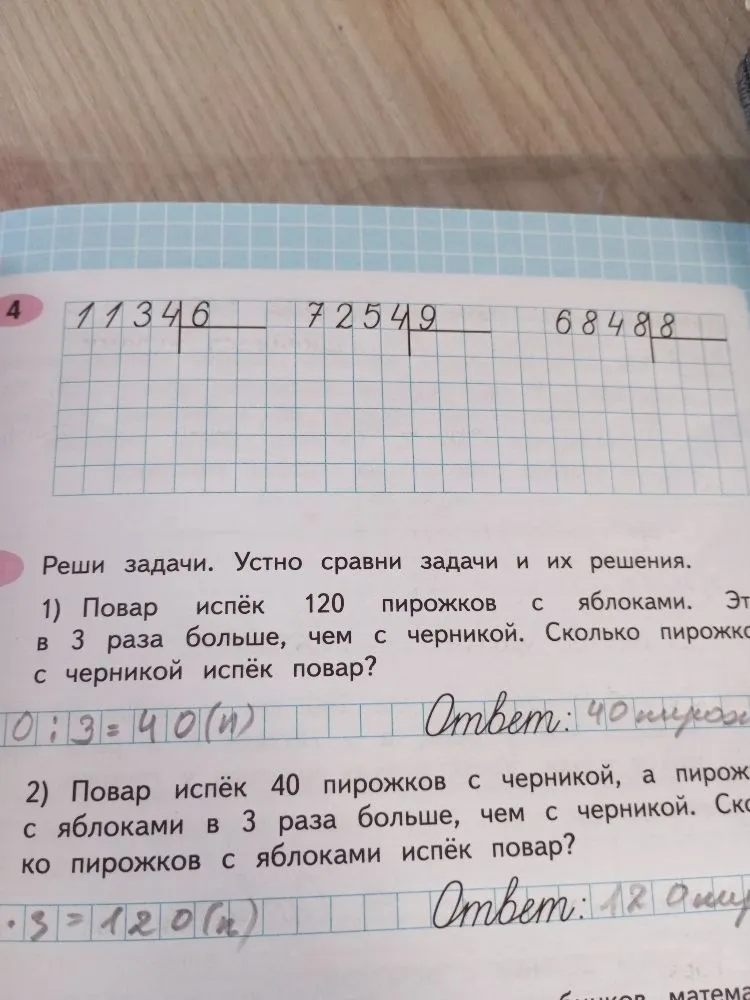 4
1134 6 7254 9 6848 8
Реши задачи. Устно сравни задачи и их решения.
1) Повар испёк 120 пирожков с яблоками. Эт
в 3 раза больше, чем с черникой. Сколько пирожко
с черникой испёк повар?
0 : 3 = 40 (п) Ответ: 40 пирож
2) Повар испёк 40 пирожков с черникой, а пирож
с яблоками в 3 раза больше, чем с черникой. Ско
ко пирожков с яблоками испёк повар?
· 3 = 120 (п) Ответ: 120 пир
матема